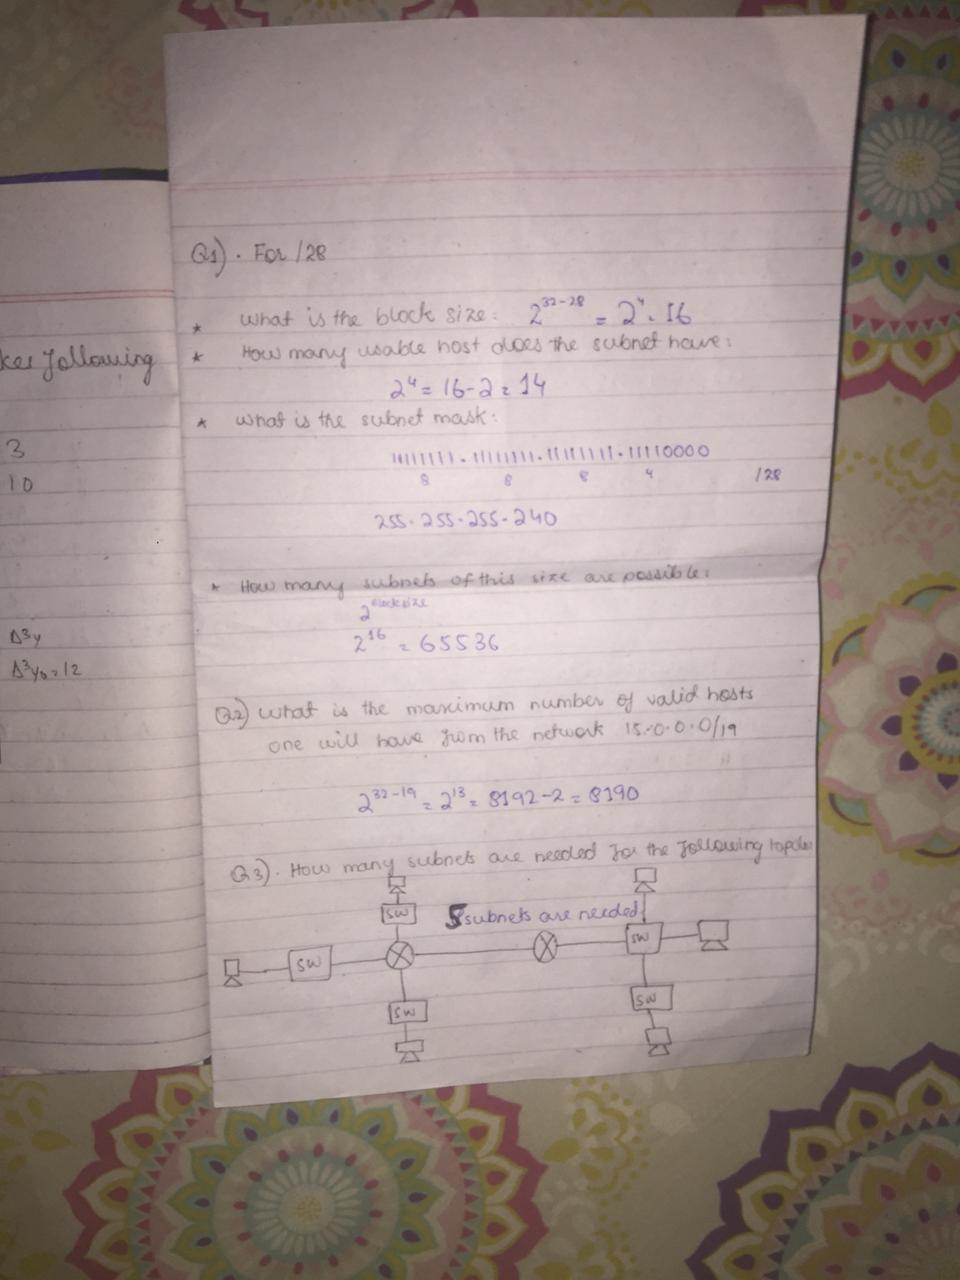 Q1). For /28
* what is the block size: 2^32-28 = 2^4 . 16
* How many usable host does the subnet have:
2^4 = 16-2 = 14
* what is the subnet mask:
11111111.11111111.11111111.11110000
8 8 8 4 /28
255.255.255.240
* How many subnets of this size are possible:
2^blocksize
2^16 = 65536
Q2) what is the maximum number of valid hosts
one will have from the network 15.0.0.0/19
2^32-19 = 2^13 = 8192-2 = 8190
Q3). How many subnets are needed for the following
5 subnets are needed
SW
SW
SW
SW
SW
following
3
10
Δ³y
Δ³y₀=12